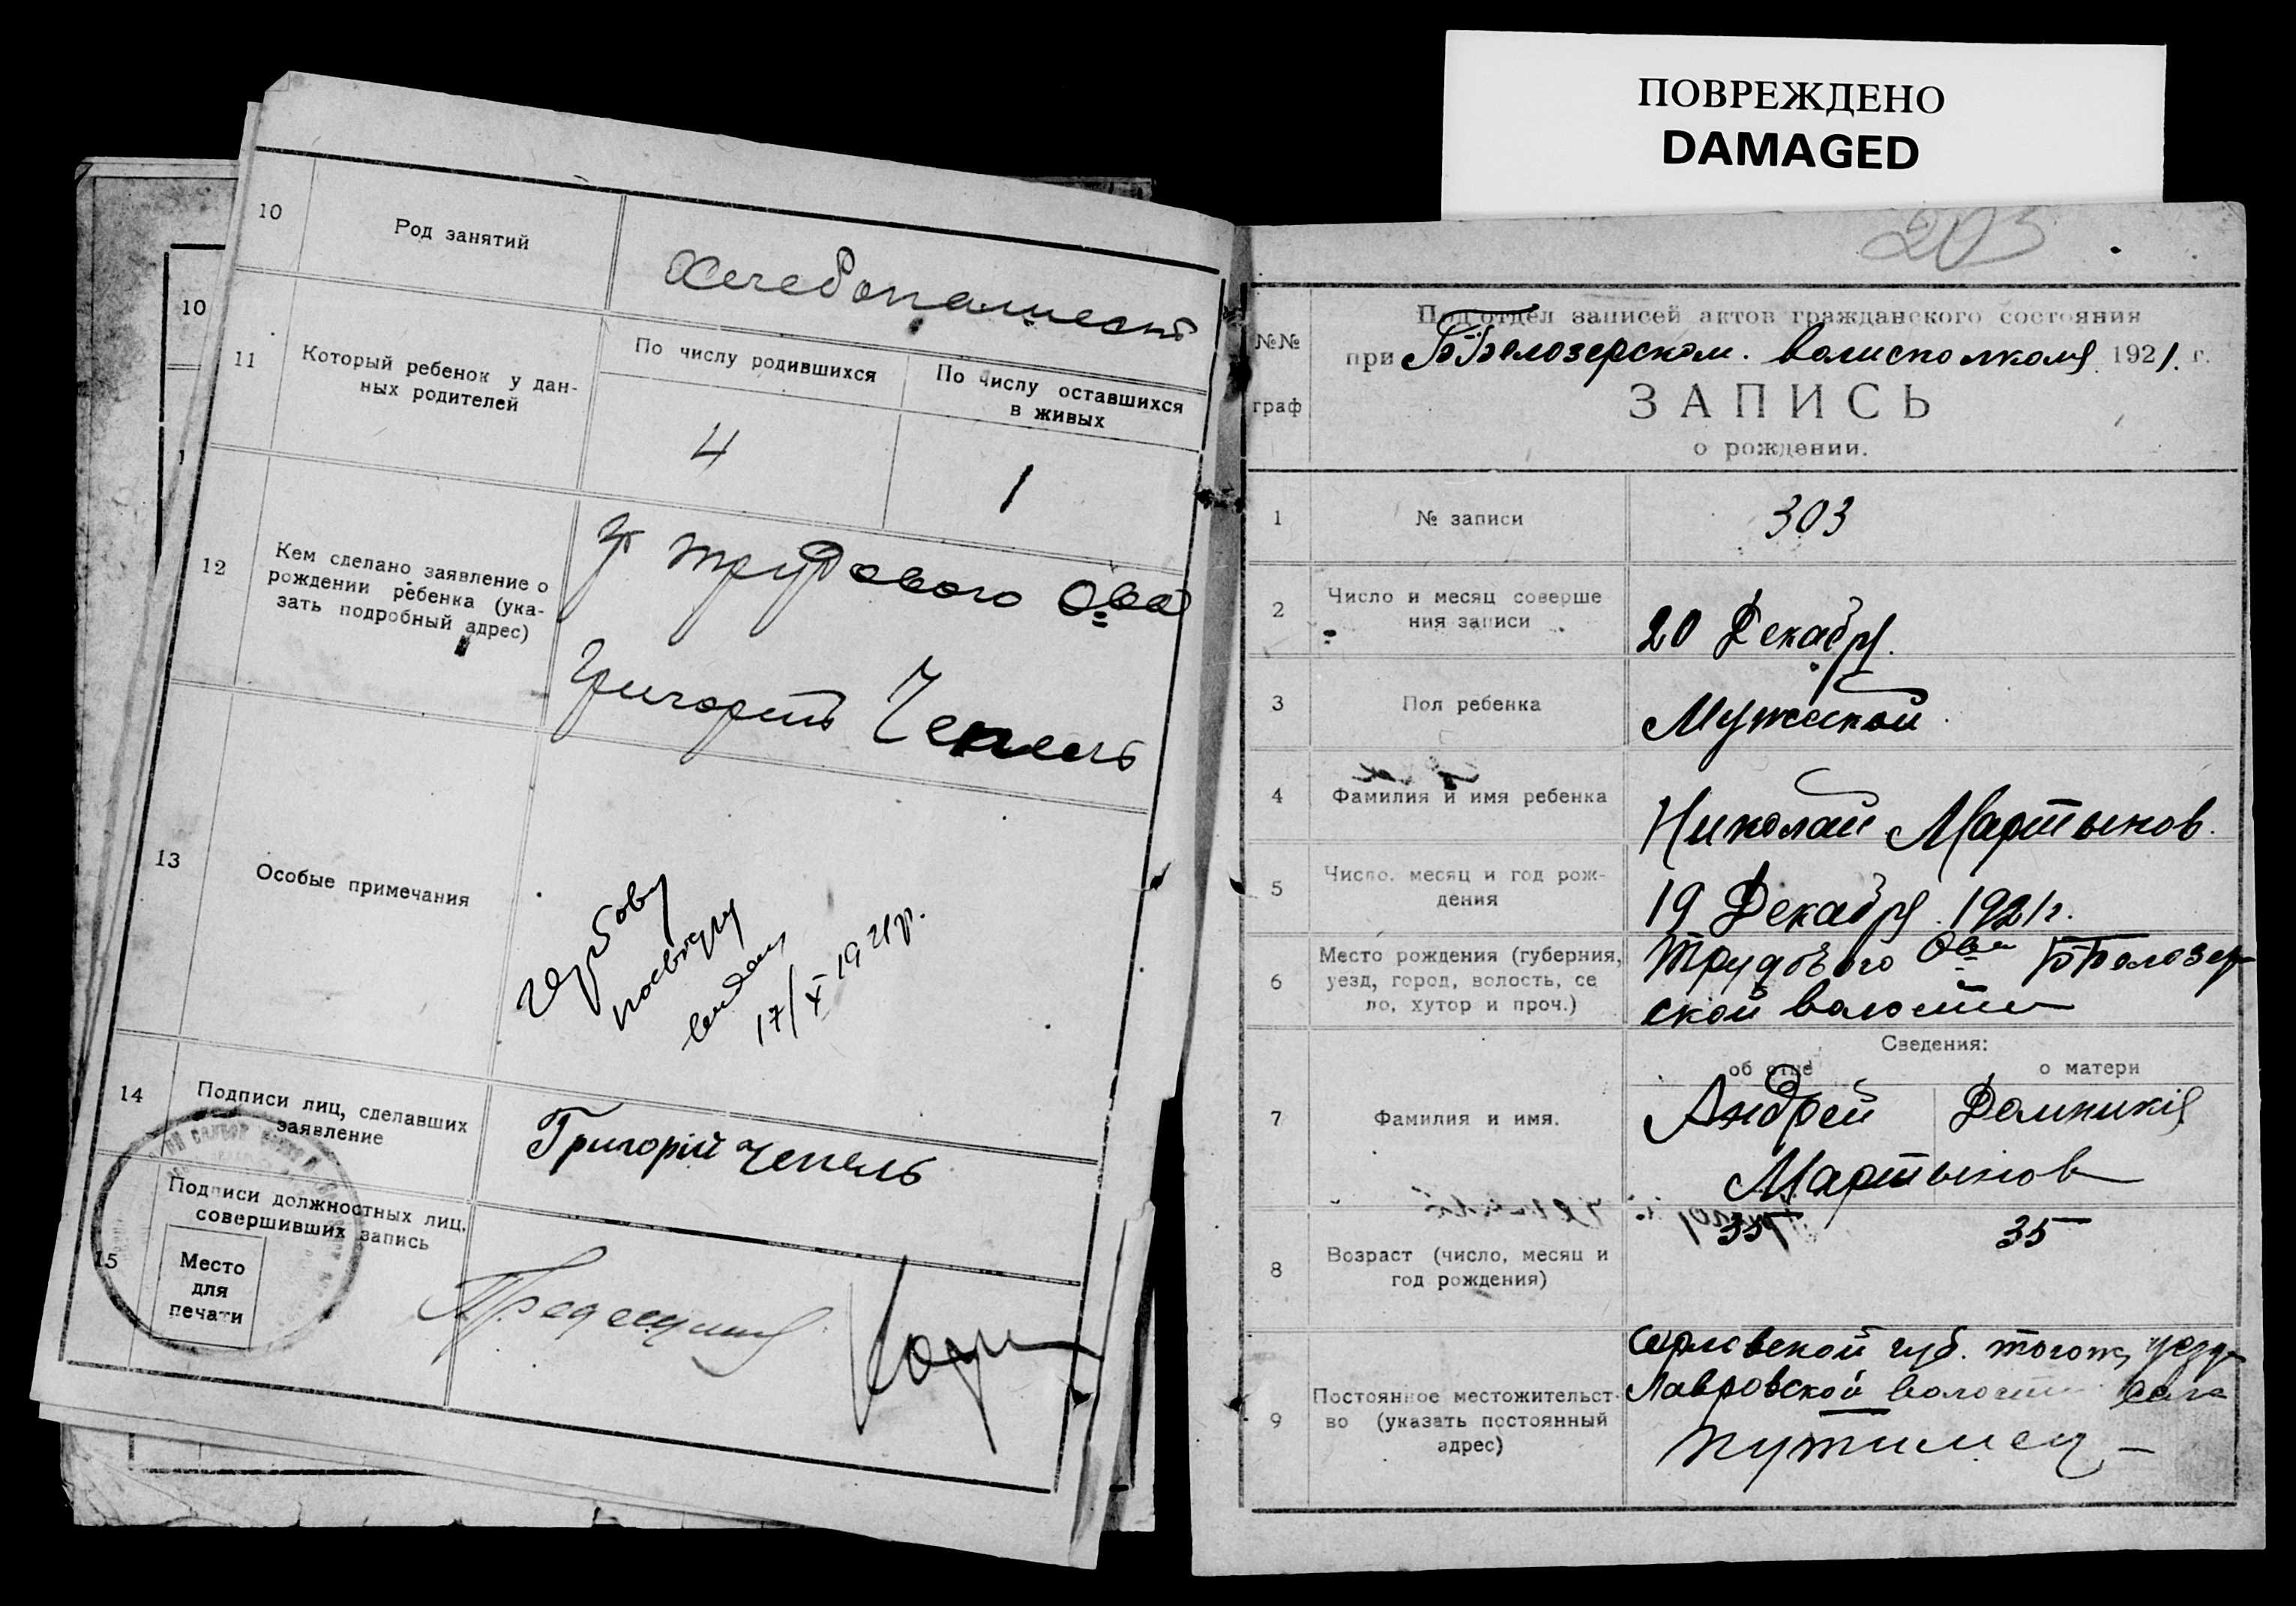 ПОВРЕЖДЕНО
DAMAGED
10
Род занятий
Хлебопашест
11
Который ребенок у дан-
ных родителей
По числу родившихся
По числу оставшихся
в живых
4
1
12
Кем сделано заявление о
рождении ребенка (ука-
зать подробный адрес)
Гр Трудового О-ва
Григорій Чепель
13
Особые примечания
17/X 1921р.
14
Подписи лиц, сделавших
заявление
Григорій Чепель
15
Подписи должностных лиц,
совершивших запись
Место
для
печати
10
203
№№
граф
Подотдел записей актов гражданского состояния
при Б Белозерском. волисполкомя 1921. г.
ЗАПИСЬ
о рождении.
1
№ записи
303
2
Число и месяц соверше
ния записи
20 Декабря.
3
Пол ребенка
Мужской
4
Фамилия и имя ребенка
Николай Мартынов.
5
Число, месяц и год рож-
дения
19 Декабря. 1921г.
6
Место рождения (губерния,
уезд, город, волость, се
ло, хутор и проч.)
Трудового О-ва Б Белозер
ской волости
Сведения:
об отце
о матери
7
Фамилия и имя.
Андрей
Домникія
Мартынов
8
Возраст (число, месяц и
год рождения)
35
35
9
Постоянное местожительст-
во (указать постоянный
адрес)
губ. тогож уезда
Лавровской волости села